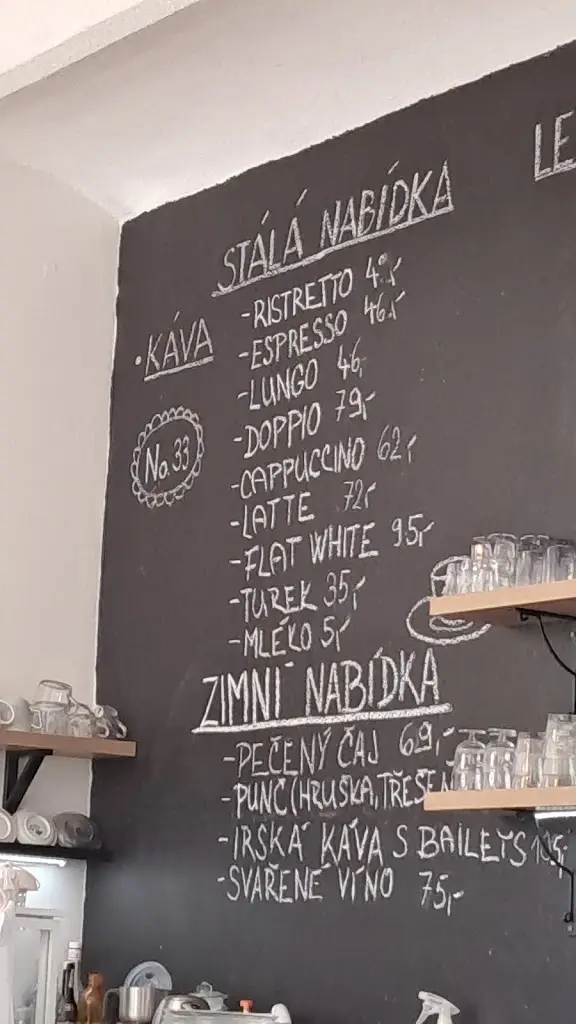 STÁLÁ NABÍDKA
• KÁVA
No. 33
-RISTRETTO
-ESPRESSO 46,-
-LUNGO 46,
-DOPPIO 79,-
-CAPPUCCINO 62,-
-LATTE 72,-
-FLAT WHITE 95,-
-TUREK 35,-
-MLÉKO 5,-
ZIMNÍ NABÍDKA
-PEČENÝ ČAJ 69,-
-PUNČ (HRUŠKA, TŘEŠEŇ
-IRSKÁ KÁVA S BAILEYS
-SVAŘENÉ VÍNO 75,-
LE